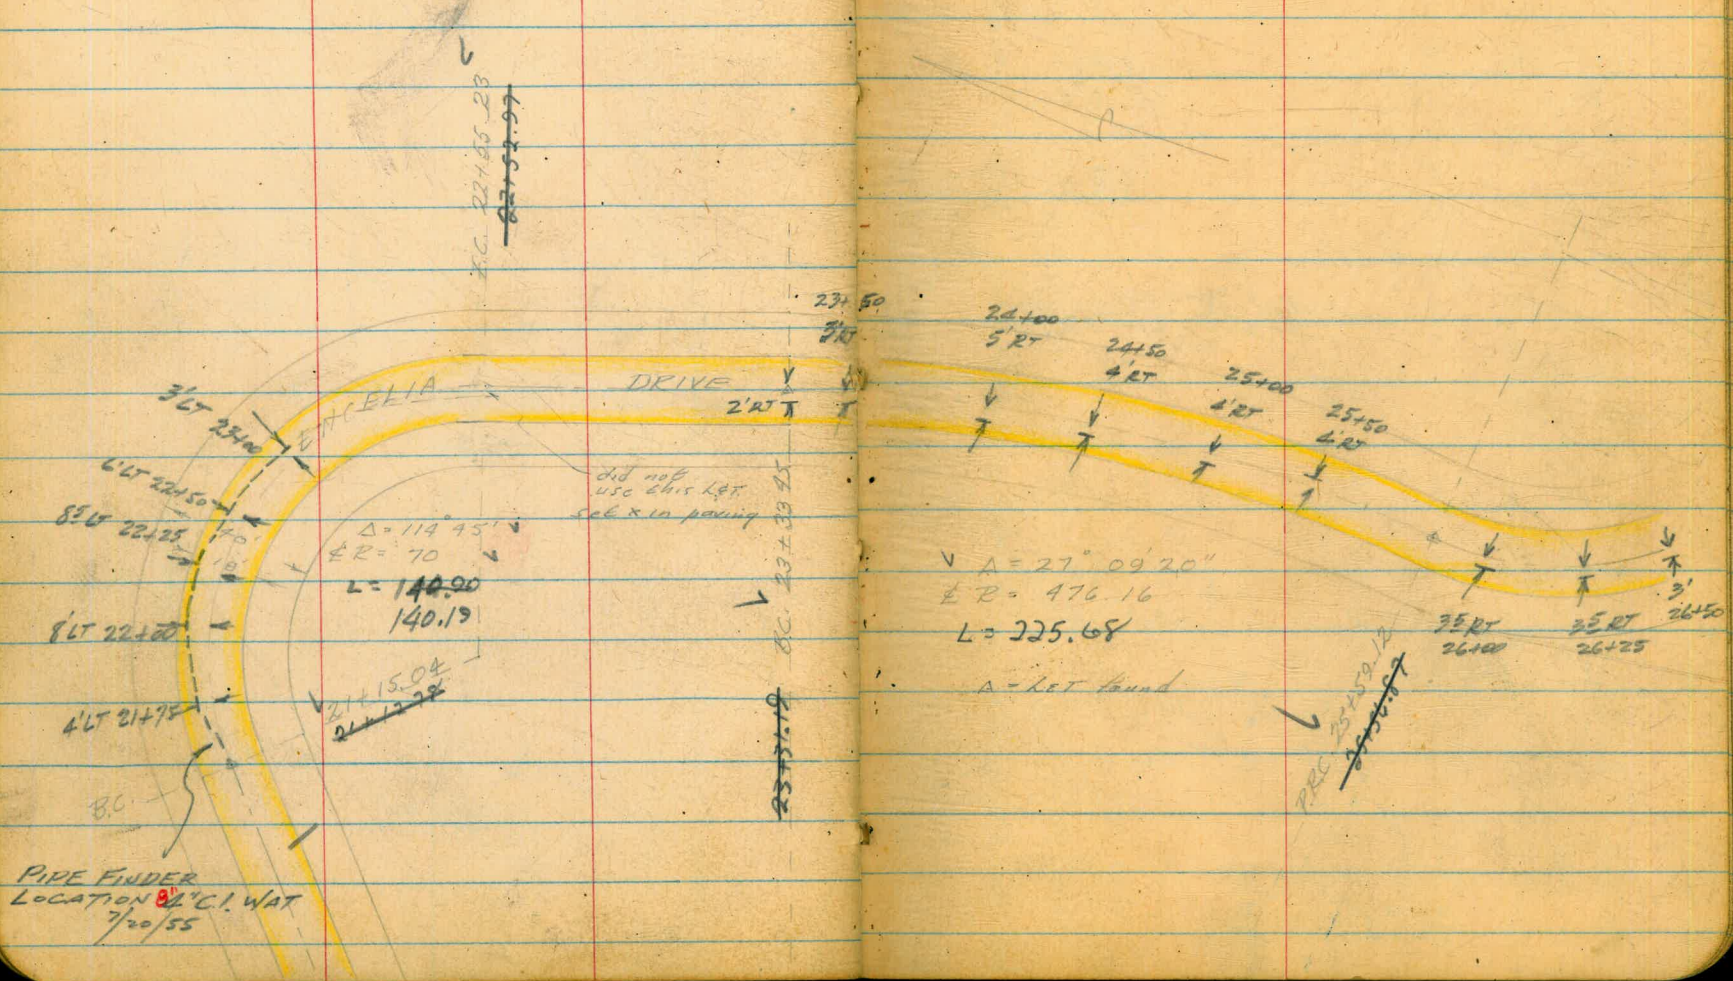 E.C. 22+55.23
22+52.97
23+50
3'RT
24+00
5'RT
24+50
4'RT
25+00
4'RT
25+50
4'RT
ENCELIA DRIVE
2'RT
3'LT
23+00
6'LT 22+50
8⁵LT 22+25
8'LT 22+00
4'LT 21+75
70'
18'
did not
use this L&T.
set x in paving
Δ = 114° 45'
℄ R = 70
L = 140.20
140.19
21+15.04
B.C. 23+33.45
23+31.19
Δ = 27° 09' 20"
℄ R = 476.16
L = 225.68
Δ = L&T found
P.R.C. 25+59.12
25+56.87
3⁵RT
26+00
3⁵RT
26+25
3'
26+50
B.C.
PIPE FINDER
LOCATION 8" 4" C.I. WAT
7/20/55